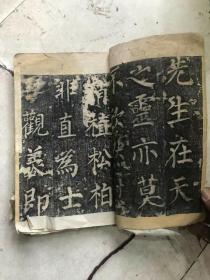 先生在天
之靈亦莫
不欣
植松柏
非直為士
觀美即